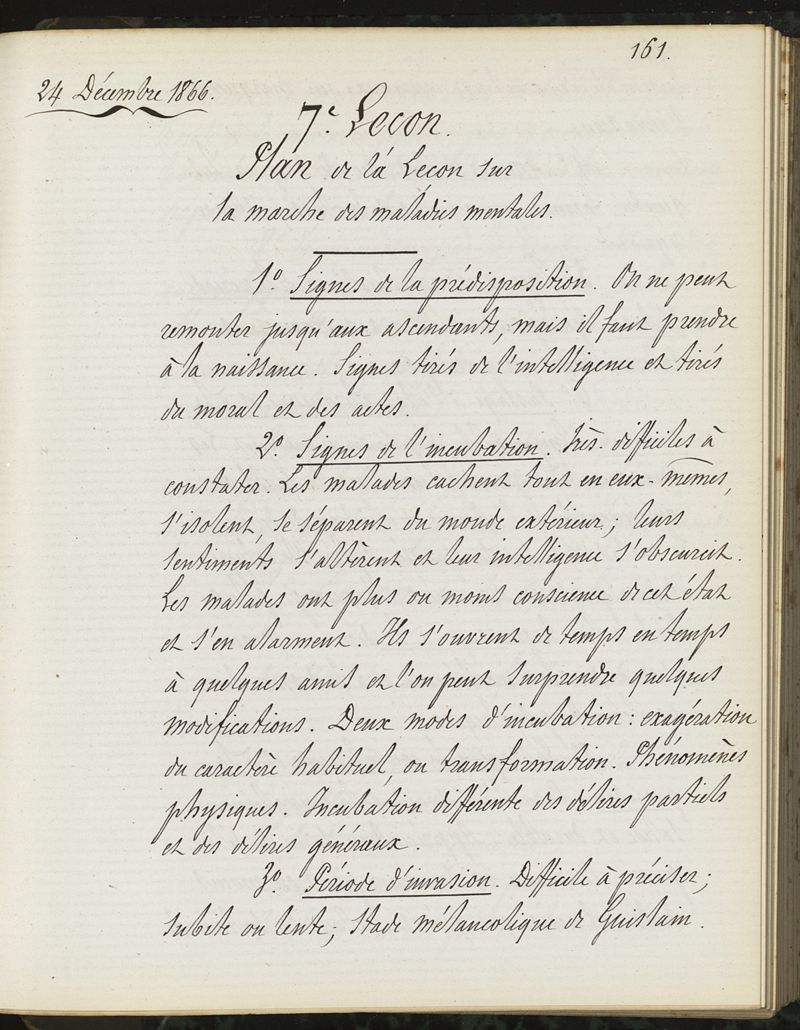 161.
24 Décembre 1866.
7e Leçon.
Plan de la Leçon sur
la marche des maladies mentales.
1o Signes de la prédisposition. On ne peut
remonter jusqu'aux ascendants, mais il faut prendre
à la naissance. Signes tirés de l'intelligence et tirés
du moral et des actes.
2o Signes de l'incubation. Très-difficiles à
constater. Les malades cachent tout en eux-mêmes,
s'isolent, se séparent du monde extérieur; leurs
sentiments s'altèrent et leur intelligence s'obscurcit.
Les malades ont plus ou moins conscience de cet état
et s'en alarment. Ils s'ouvrent de temps en temps
à quelques amis et l'on peut surprendre quelques
modifications. Deux modes d'incubation: exagération
du caractère habituel, ou transformation. Phénomènes
physiques. Incubation différente des délires partiels
et des délires généraux.
3o Période d'invasion. Difficile à préciser;
subite ou lente; stade mélancolique de Guislain.